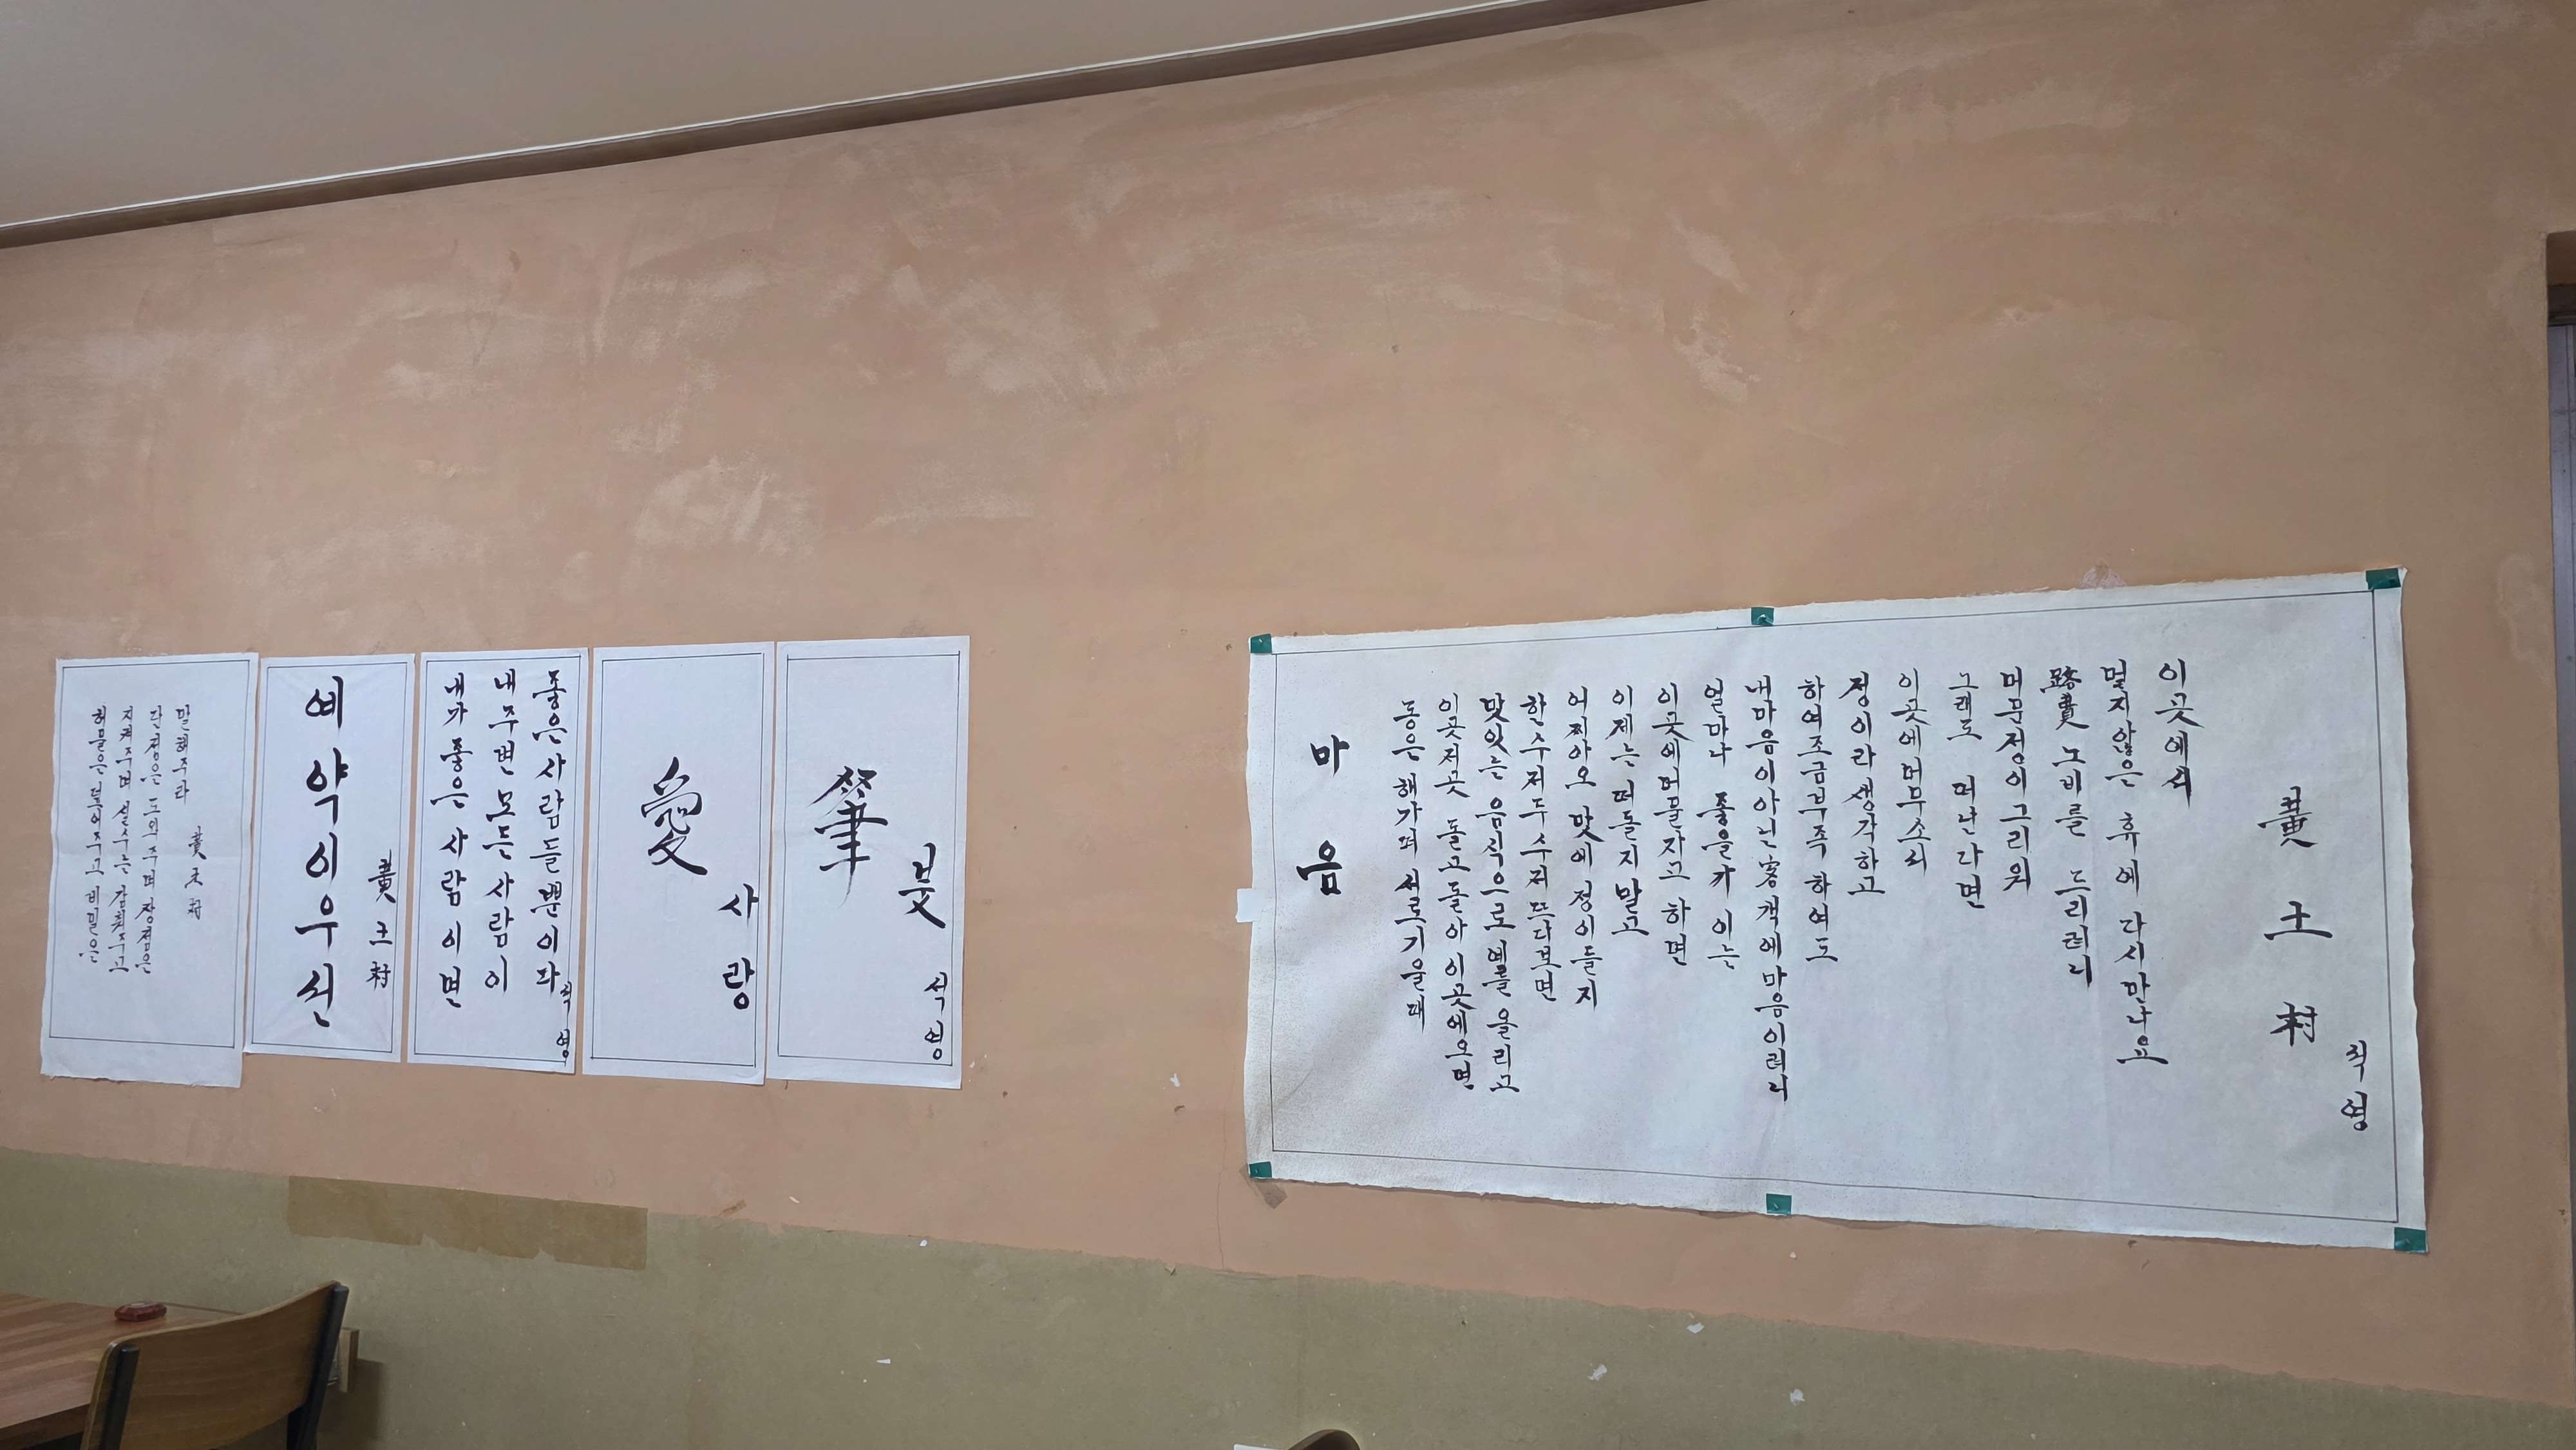 허물은 덮어주고 비밀은
지켜주며 실수는 감춰주고
단점은 도와주며 장점은
말해주라
黃土村
예약이우선
黃土村
내가 좋은 사람이면
내주변 모든 사람이
좋은사람들뿐이다
석영
愛
사랑
筆
붓
석영
마음
동은 해가떠 서로기울때
이곳저곳 돌고돌아 이곳에오면
맛있는 음식으로 예를 올리고
한수저두수저 뜨다보면
어찌아오 맛에 정이들지
이제는 떠돌지말고
이곳에머물자고 하면
얼마나 좋을까 이는
내마음이아닌 客객에마음이려니
하여조금부족 하여도
정이라생각하고
이곳에머무소서
그래도 떠난다면
머문정이그리워
路費 노비를 드리려니
멀지않은 휴에 다시만나요
이곳에서
黃土村
석영